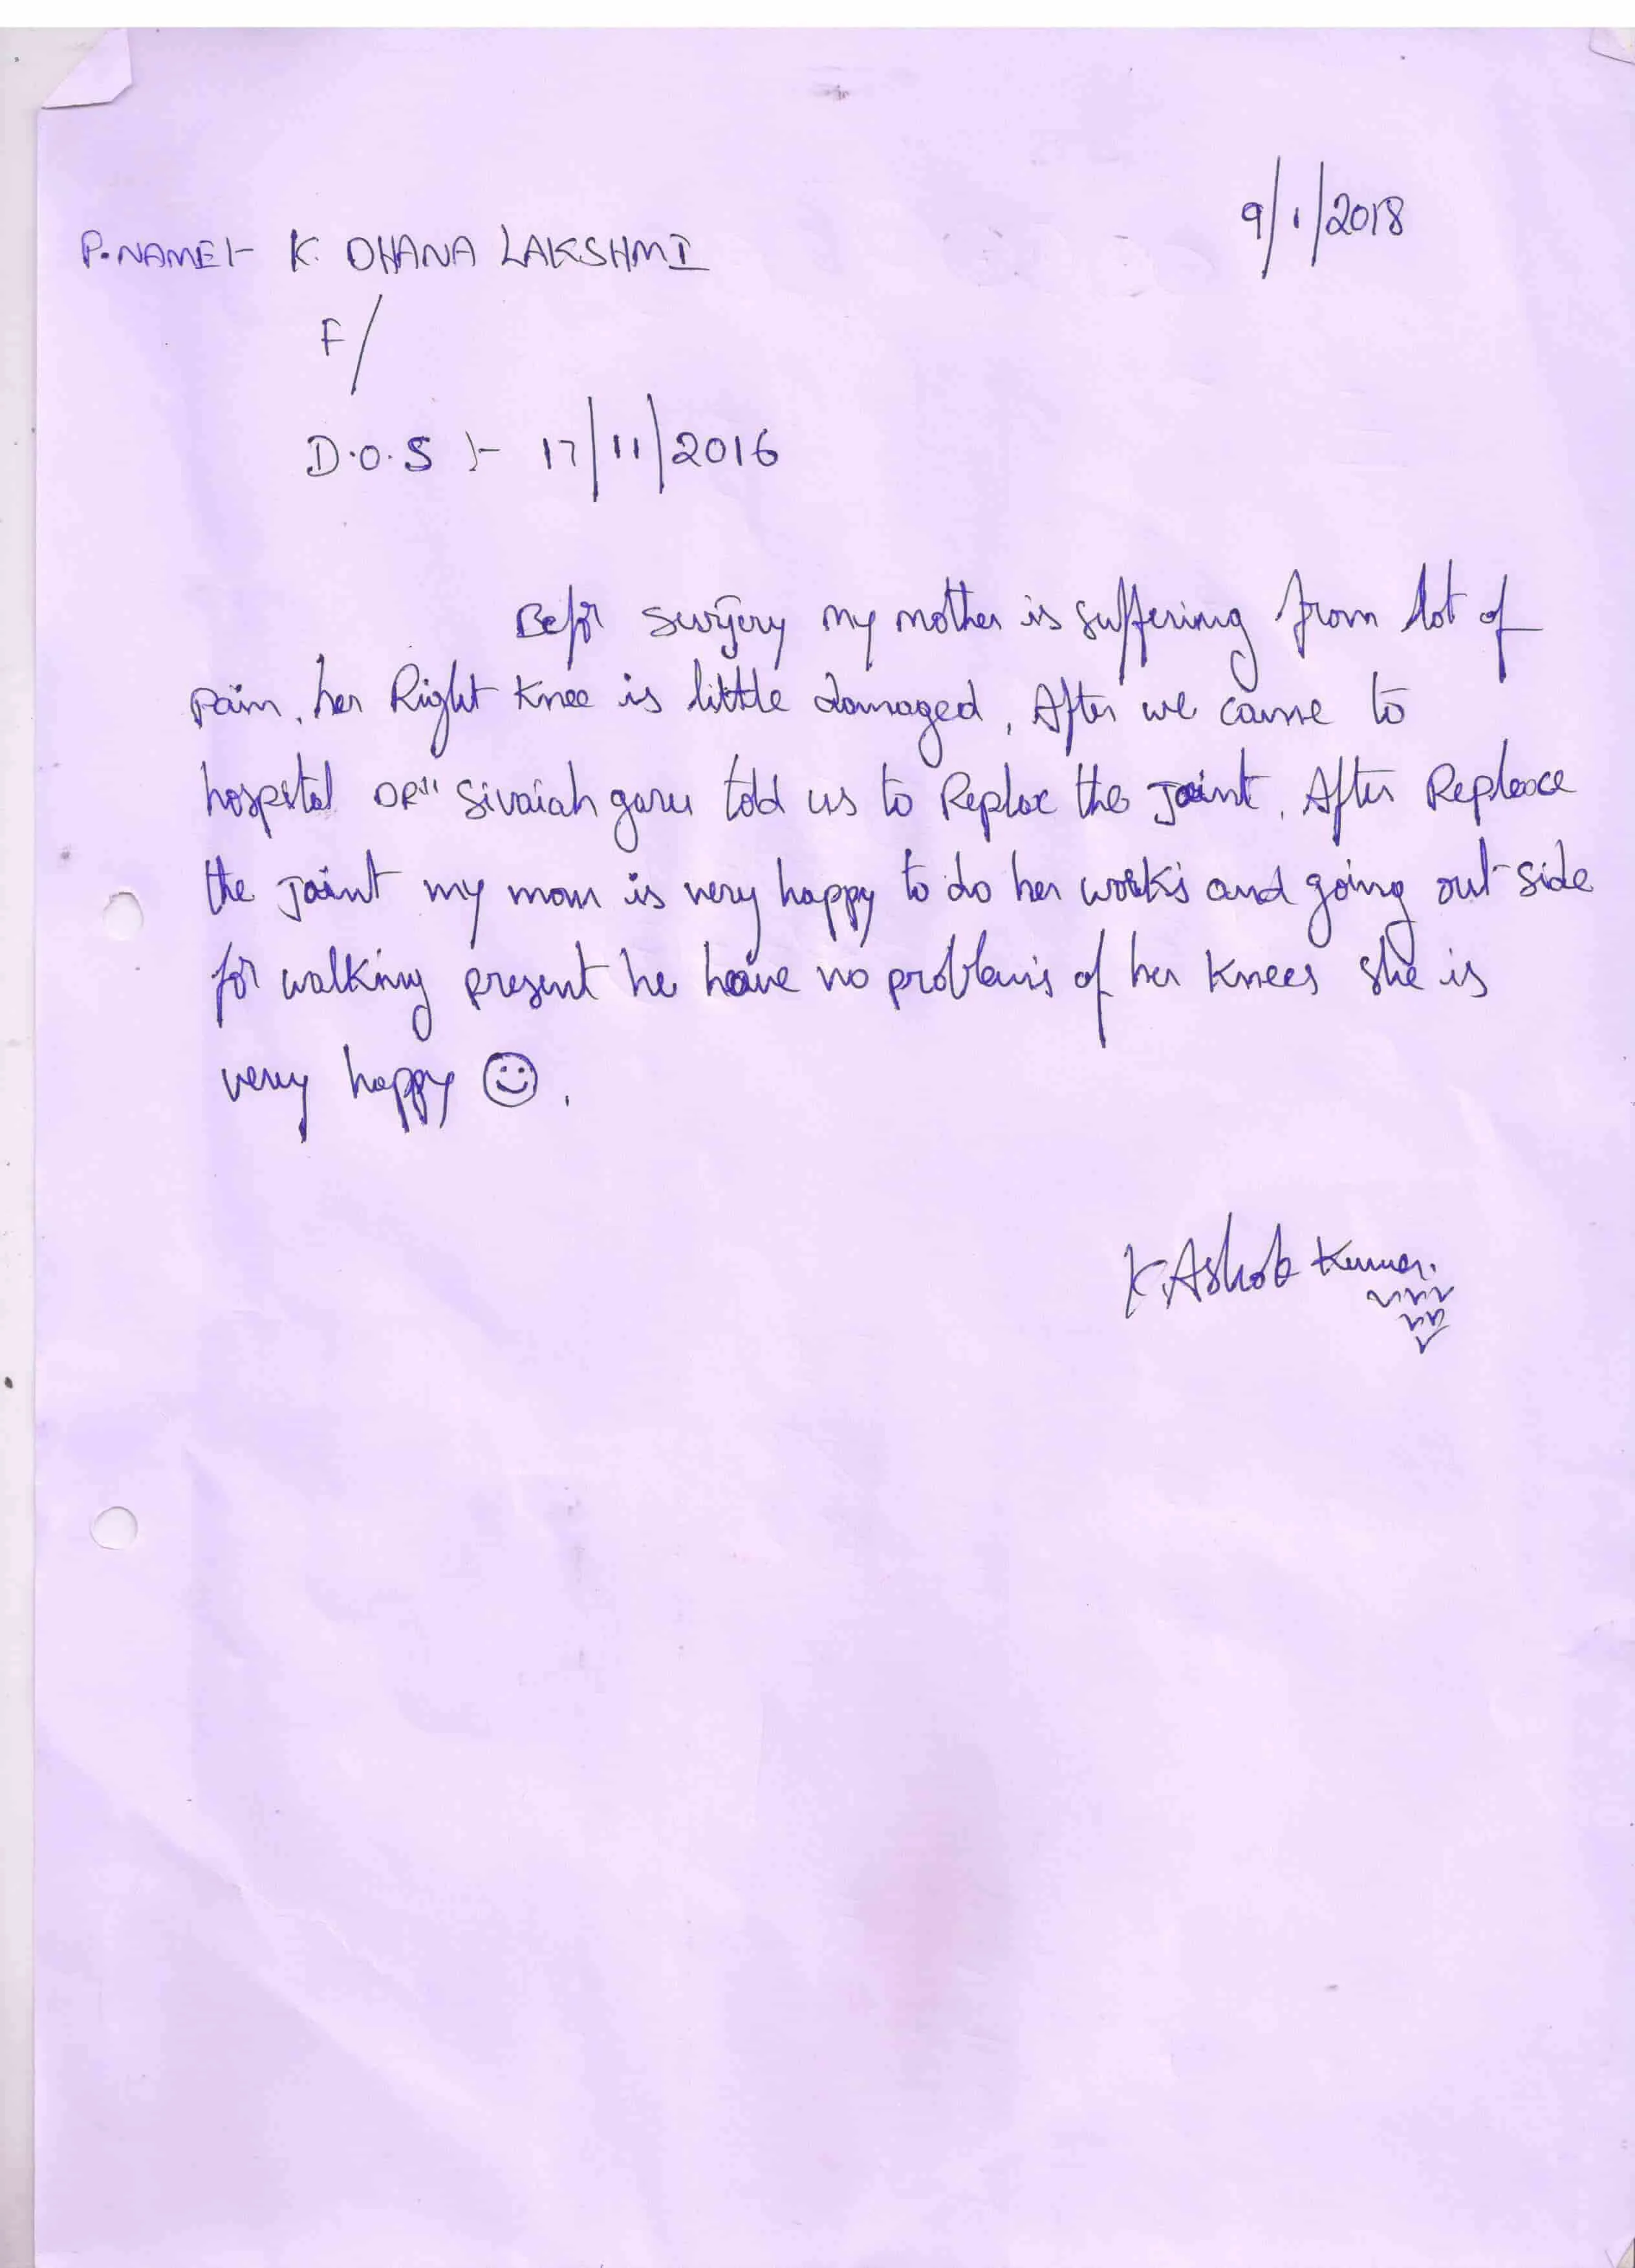 9/1/2018
P.NAME:- K. DHANA LAKSHMI
F/
D.O.S :- 17/11/2016
Befor surgery my mother is suffering from lot of
pain, her Right Knee is little damaged, After we came to
hospital DR" Sivaiah garu told us to Replace the Joint, After Repleace
the Joint my mom is very happy to do her works and going out side
for walking present he have no problem's of her knees she is
very happy ☺.
K. Ashok Kumar.